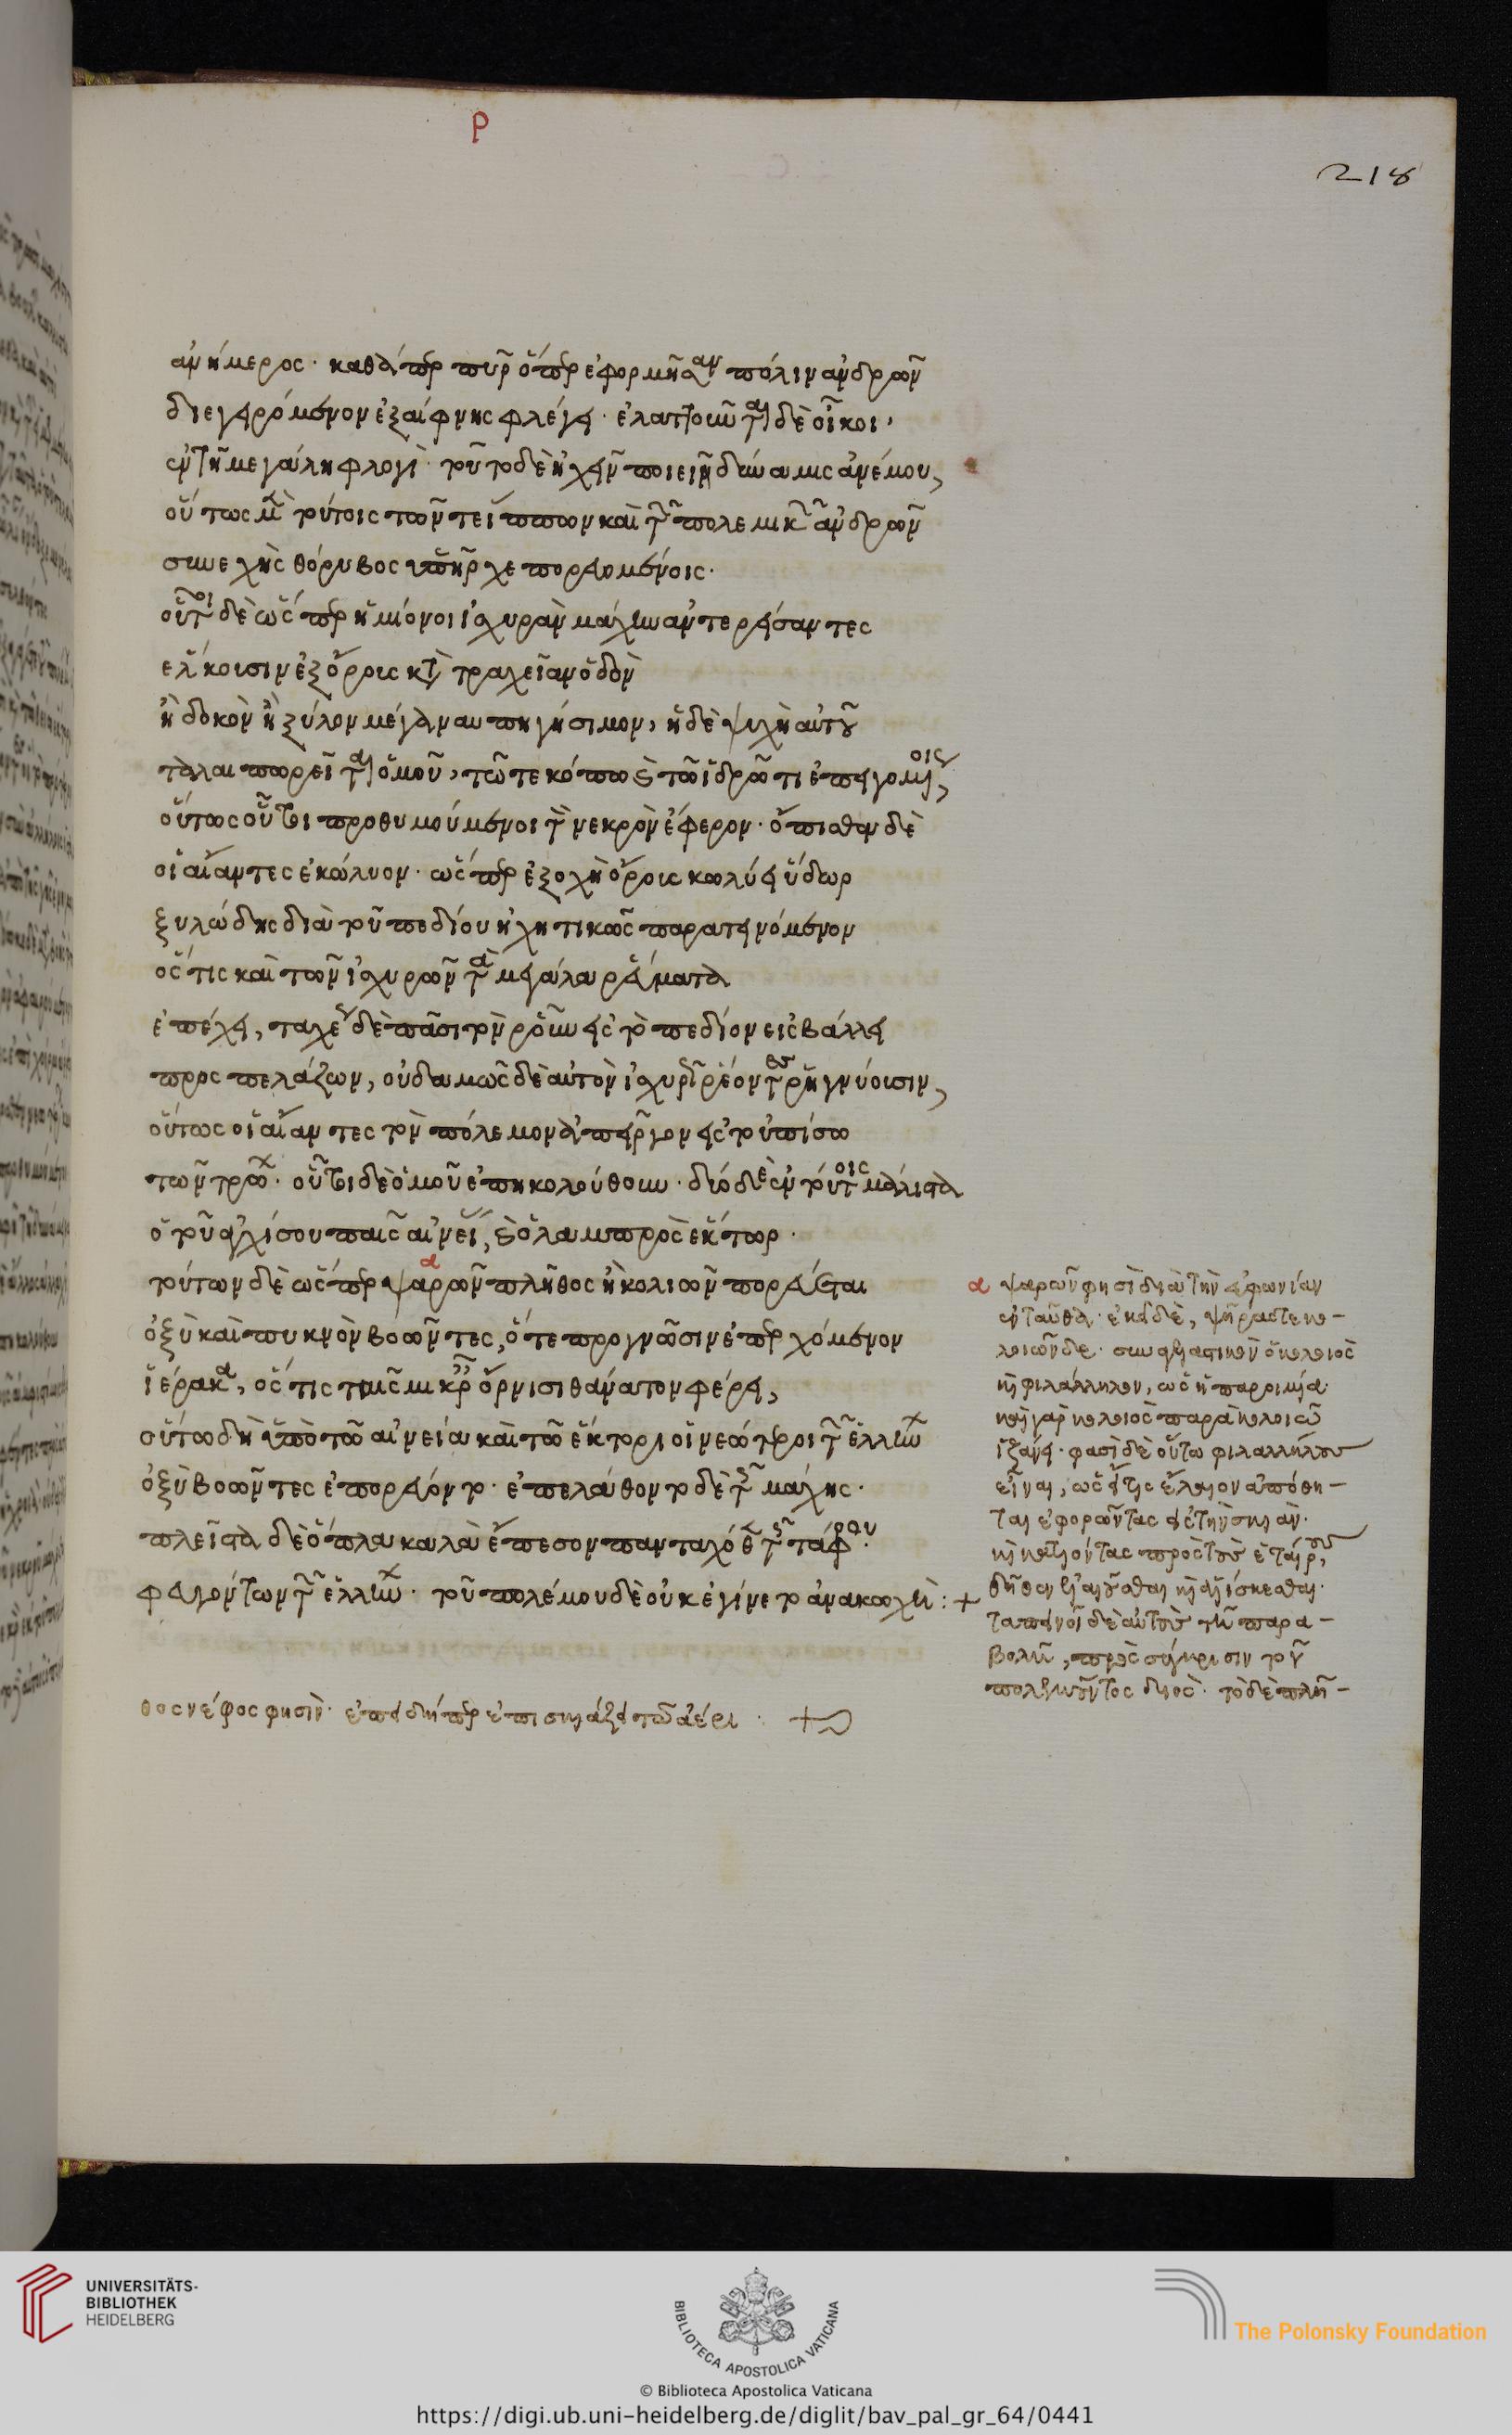 ρ
218
ἀνήμερος· καθάπερ πῦρ ὅπερ ἐφορμῆσαν πόλιν ἀνδρῶν
διεγειρόμενον ἐξαίφνης φλέγει· ἐλαττοῦνται δὲ οἶκοι,
ἐν τῇ μεγάλῃ φλογί· τοῦτο δὲ ἠχεῖν ποιεῖ ἡ δύναμις ἀνέμου,
οὕτως μετὰ τούτοις τῶν τε ἵππων καὶ τῶν πολεμικῶν ἀνδρῶν
συνεχὴς θόρυβος ὑπῆρχε πορευομένοις·
οὗτοι δὲ ὥσπερ ἡμίονοι ἰσχυρὰν μάχην ἀντερείσαντες
ἕλκουσιν ἐξ ὄρους κατὰ τραχεῖαν ὁδὸν
ἢ δοκὸν ἢ ξύλον μέγα ναυπηγήσιμον, ἡ δὲ ψυχὴ αὐτοῦ
ταλαιπωρεῖται ὁμοῦ, τῷ τε κόπῳ καὶ τῷ ἱδρῶτι ἐπειγομένοις,
οὕτως οὗτοι προθυμούμενοι τὸν νεκρὸν ἔφερον· ὄπισθεν δὲ
οἱ αἴαντες ἐκώλυον· ὥσπερ ἐξοχὴ ὄρους κωλύει ὕδωρ
ξυλώδης διὰ τοῦ πεδίου ἠχητικῶς παρατεινόμενον
ὅστις καὶ τῶν ἰσχυρῶν τὰ μεγάλα ῥεύματα
ἐπέχει, ταχέως δὲ πᾶσι τὸν ῥοῦν εἰς τὸ πεδίον εἰσβάλλει
προσπελάζων, οὐδαμῶς δὲ αὐτὸν ἰσχυρῶς ῥέοντες ῥηγνύουσιν,
οὕτως οἱ αἴαντες τὸν πόλεμον ἀπεῖργον εἰς τὸ ὀπίσω
τῶν τρώων· οὗτοι δὲ ὁμοῦ ἐπηκολούθουν· δύο δὲ ἐν τούτοις μάλιστα
ὁ τοῦ ἀγχίσου παῖς αἰνείας, καὶ ὁ λαμπρὸς ἕκτωρ·
τούτων δὲ ὥσπερ ψαρῶν πλῆθος ἢ κολιῶν πορεύεται
ὀξὺ καὶ πυκνὸν βοῶντες, ὅτε προγνῶσιν ἐπερχόμενον
ἱέρακα, ὅστις τοῖς μικροῖς ὄρνισι θάνατον φέρει,
οὕτω δὴ ὑπὸ τῷ αἰνείᾳ καὶ τῷ ἕκτορι οἱ νεώτεροι τῶν ἑλλήνων
ὀξὺ βοῶντες ἐπορεύοντο· ἐπελάθοντο δὲ τῆς μάχης·
πλεῖστα δὲ ὅπλα καλὰ ἔπεσον πανταχόθεν τῆς τάφρου·
φευγόντων τῶν ἑλλήνων· τοῦ πολέμου δὲ οὐκ ἐγίνετο ἀνακωχή : +
α ψαρῶν φησὶ διὰ τὴν εὐφωνίαν
ἐνταῦθα· ἐκεῖ δὲ, ψῆράς τε κο-
λοιῶν δε· συναγελαστικὸν ὁ κολοιὸς
καὶ φιλάλληλον, ὡς ἡ παροιμία·
καὶ γὰρ κολοιὸς παρὰ κολοιῷ
ἱζάνει· φασὶ δὲ οὕτω φιλαλλήλους
εἶναι, ὡς εἴ τις ἔλαιον ἀπόθη-
ται ἐφορῶντας εἰς τὴν σκιὰν·
καὶ κατιόντας πρὸς τοὺς ἑταίρους,
δῆθεν καὶ ἁλίσκεσθαι·
ταπεινοῖ δὲ αὐτοὺς τῇ παρα-
βολῇ, πρὸς σύγκρισιν τοῦ
πολεμοῦντος διός· τὸ δὲ πλῆ-
θος νέφος φησίν· ἐπειδήπερ ἐπισκιάζει τῷ ἀέρι · +
UNIVERSITÄTS-
BIBLIOTHEK
HEIDELBERG
BIBLIOTECA APOSTOLICA VATICANA
The Polonsky Foundation
© Biblioteca Apostolica Vaticana
https://digi.ub.uni-heidelberg.de/diglit/bav_pal_gr_64/0441